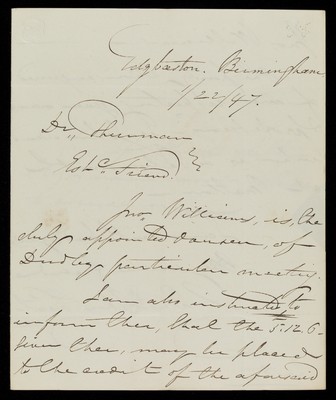 Edgbaston. Birmingham
1/22/47.
Dr. Thurman
Estd. Friend.
Jno. Williams, is, the
duly appointed  of
Dudley particular meetg.
I am also instructed to
inform thee, that the 5.12.6-
given thee, may be placed
to the credit of the aforesaid